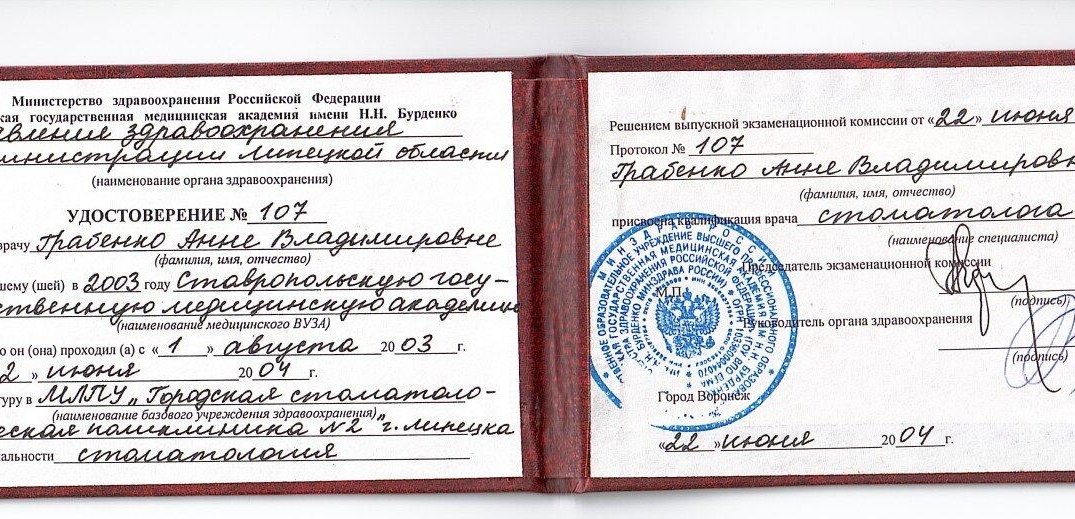 Министерство здравоохранения Российской Федерации
кая государственная медицинская академия имени Н.Н. Бурденко
авления здравоохранения
министрации Липецкой области
(наименование органа здравоохранения)
УДОСТОВЕРЕНИЕ № 107
врачу Грабенко Анне Владимировне
(фамилия, имя, отчество)
шему (шей) в 2003 году Ставропольскую госу-
ственную медицинскую академию
(наименование медицинского ВУЗа)
о он (она) проходил (а) с «1» августа 2003 г.
2» июня 2004 г.
туру в МЛПУ „Городская стоматоло-
(наименование базового учреждения здравоохранения)
еская поликлиника №2" г. Липецка
альности стоматология
Решением выпускной экзаменационной комиссии от «22» июня
Протокол № 107
Грабенко Анне Владимировн
(фамилия, имя, отчество)
присвоена квалификация врача стоматолога
(наименование специалиста)
Председатель экзаменационной комиссии
(подпись)
М.П.
Руководитель органа здравоохранения
(подпись)
Город Воронеж
«22» июня 2004 г.